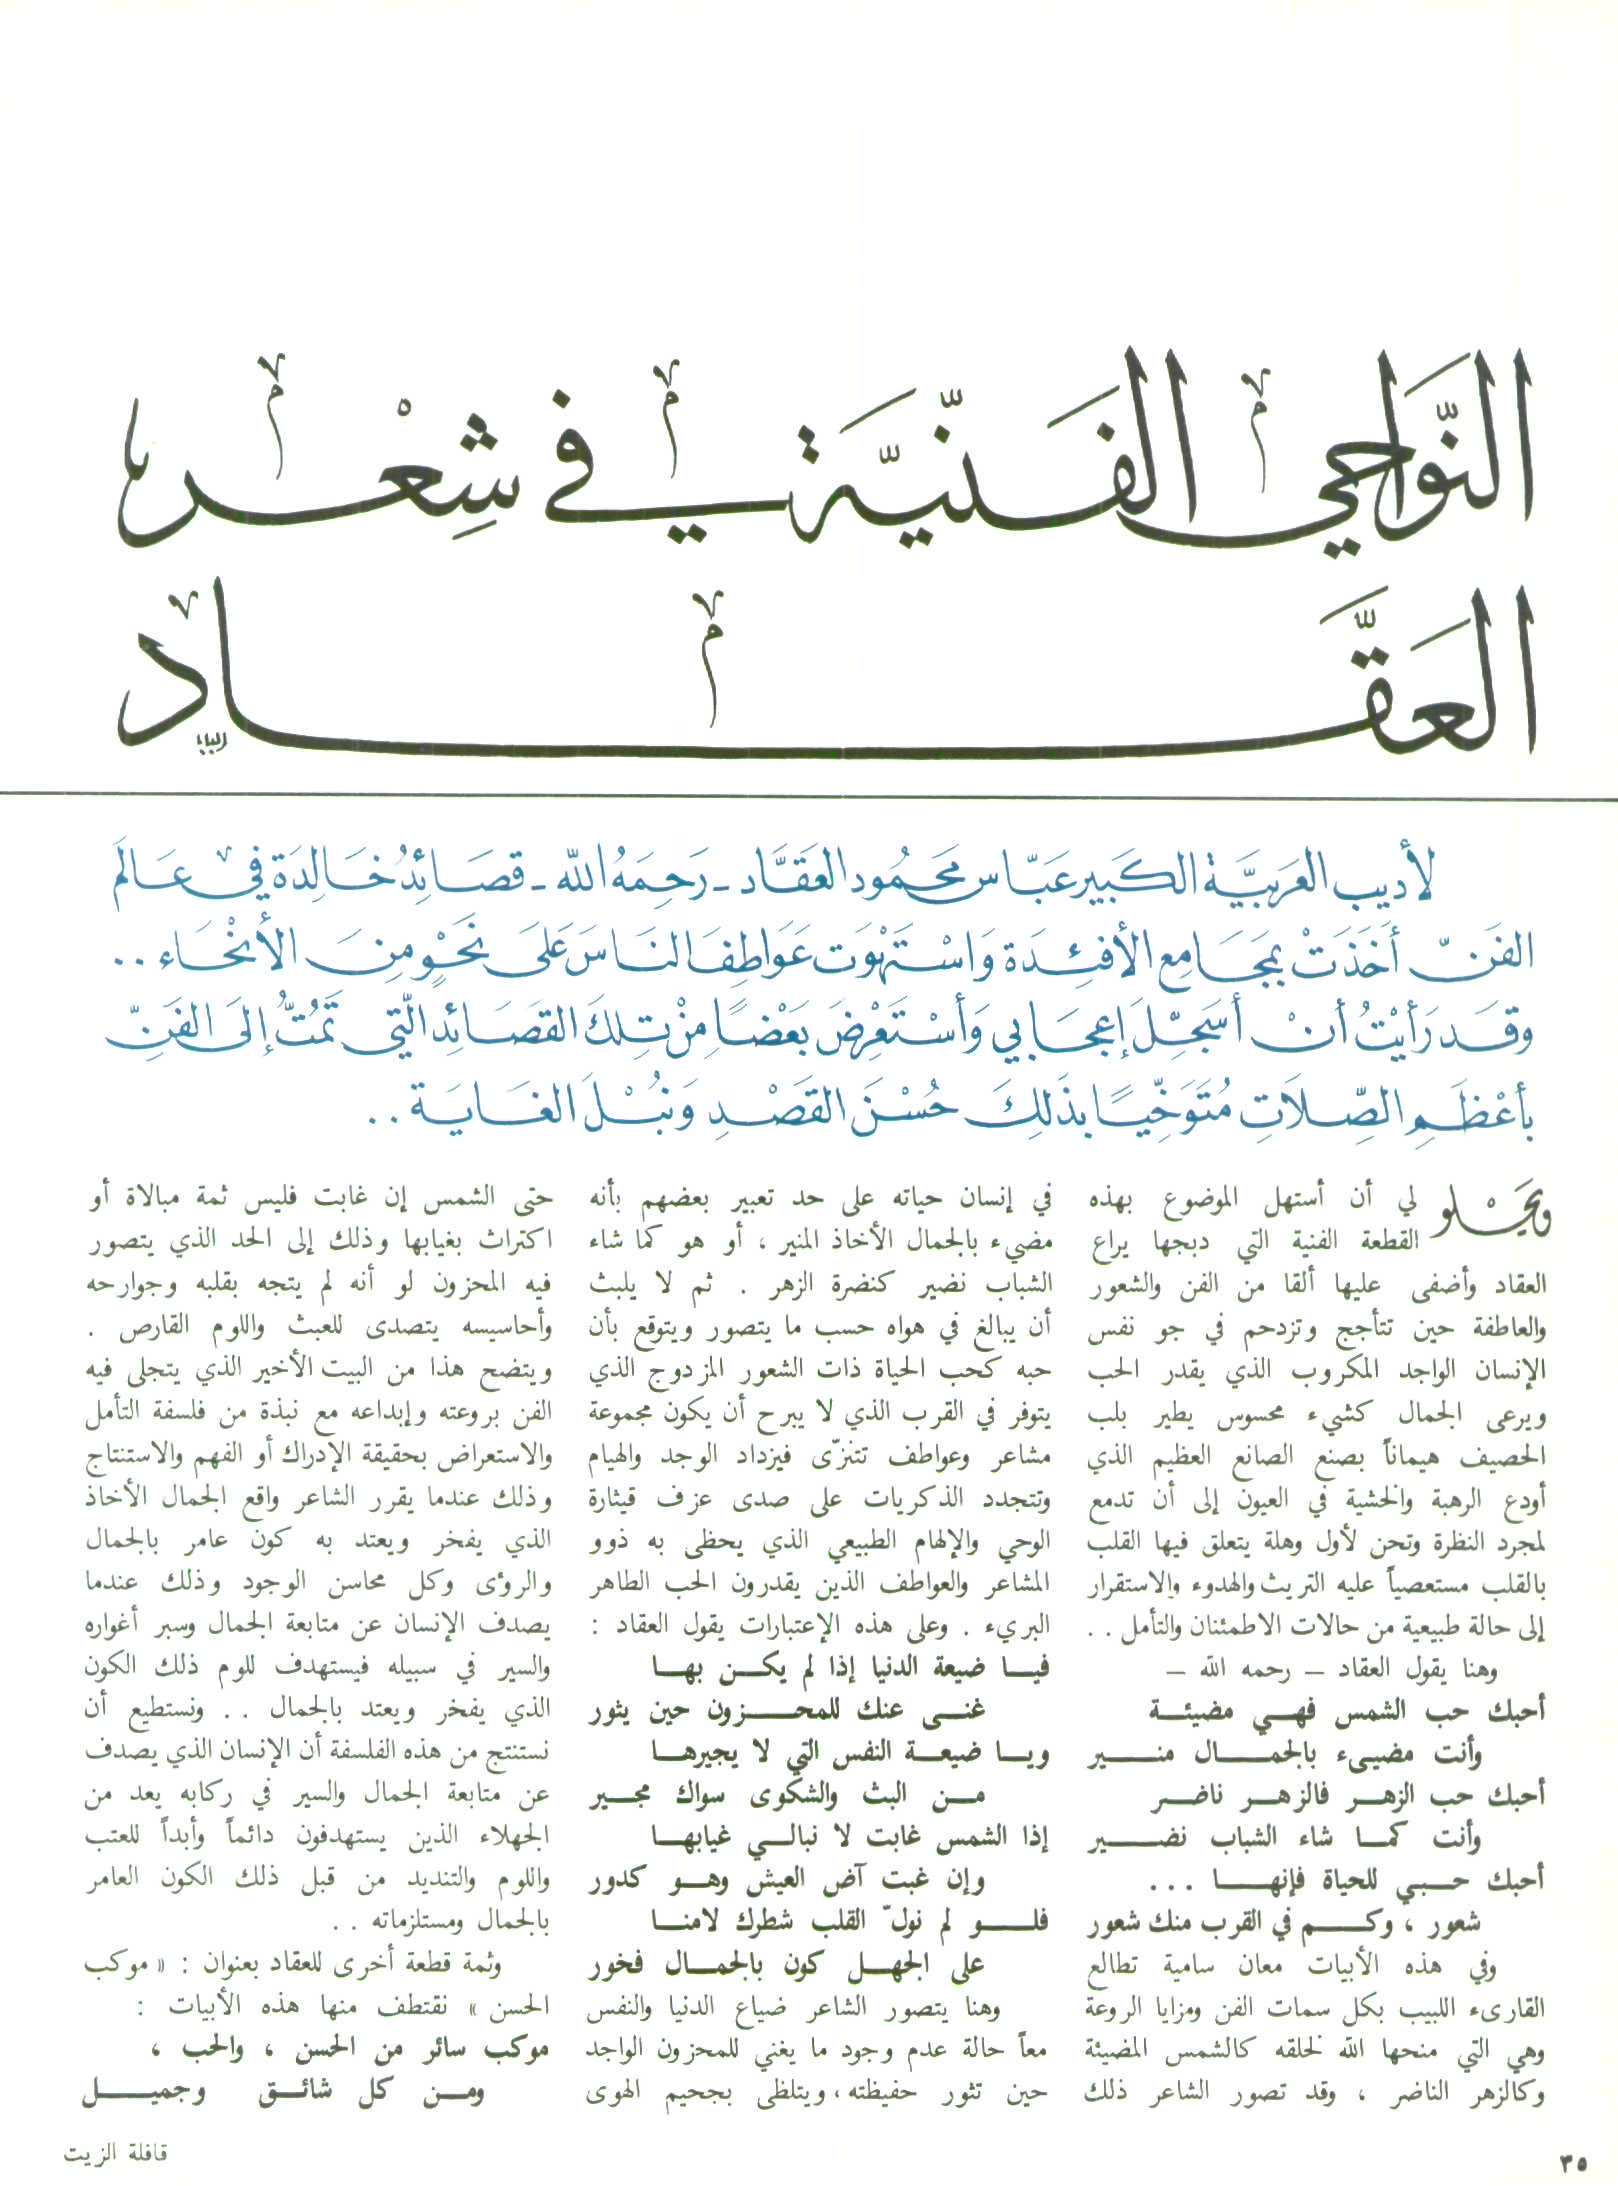 النَّوَاحي الفَنيَّة في شِعْر
العَقَّاد
لأديب العَربيَّة الكَبير عَبّاس مَحمُود العَقَّاد - رَحِمَهُ الله - قصَائِدُ خَالِدَة في عَالَم
الفَنّ أَخَذَتْ بمَجَامِع الأفئِدَة وَاسْتَهْوَت عَوَاطِفَ النَاسَ عَلَى نَحْوٍ مِنَ الأنْحَاء ..
وقَد رَأيْتُ أنْ أسَجِّلَ إعجَابي وَأسْتَعْرِضَ بَعْضًا مِنْ تِلكَ القَصَائِد الّتي تَمُتُّ إلَى الفَنِّ
بأعْظَمِ الصِّلاَتِ مُتَوَخِّيًا بذَلِكَ حُسْنَ القَصْدِ وَنُبْلَ الغَايَة ..
ويَحْلو لي أن أستهل الموضوع بهذه
القطعة الفنية التي دبجها يراع
العقاد وأضفى عليها ألقا من الفن والشعور
والعاطفة حين تتأجج وتزدحم في جو نفس
الإنسان الواجد المكروب الذي يقدر الحب
ويرعى الجمال كشيء محسوس يطير بلب
الحصيف هيماناً بصنع الصانع العظيم الذي
أودع الرهبة والخشية في العيون إلى أن تدمع
لمجرد النظرة وتحن لأول وهلة يتعلق فيها القلب
بالقلب مستعصياً عليه التريث والهدوء والاستقرار
إلى حالة طبيعية من حالات الاطمئنان والتأمل . .
وهنا يقول العقاد – رحمه الله –
أحبك حب الشمس فهي مضيئة
وأنت مضيىء بالجمال منير
أحبك حب الزهر فالزهر ناضر
وأنت كما شاء الشباب نضير
أحبك حبي للحياة فإنها . . .
شعور ، وكم في القرب منك شعور
وفي هذه الأبيات معان سامية تطالع
القارىء اللبيب بكل سمات الفن ومزايا الروعة
وهي التي منحها الله لخلقه كالشمس المضيئة
وكالزهر الناضر ، وقد تصور الشاعر ذلك
في إنسان حياته على حد تعبير بعضهم بأنه
مضيء بالجمال الأخاذ المنير ، أو هو كما شاء
الشباب نضير كنضرة الزهر . ثم لا يلبث
أن يبالغ في هواه حسب ما يتصور ويتوقع بأن
حبه كحب الحياة ذات الشعور المزدوج الذي
يتوفر في القرب الذي لا يبرح أن يكون مجموعة
مشاعر وعواطف تتنزّى فيزداد الوجد والهيام
وتتجدد الذكريات على صدى عزف قيثارة
الوحي والإلهام الطبيعي الذي يحظى به ذوو
المشاعر والعواطف الذين يقدرون الحب الطاهر
البريء . وعلى هذه الإعتبارات يقول العقاد :
فيا ضيعة الدنيا إذا لم يكن بها
غنى عنك للمحزون حين يثور
ويا ضيعة النفس التي لا يجيرها
من البث والشكوى سواك مجير
إذا الشمس غابت لا نبالي غيابها
وإن غبت آض العيش وهو كدور
فلو لم نولّ القلب شطرك لامنا
على الجهل كون بالجمال فخور
وهنا يتصور الشاعر ضياع الدنيا والنفس
معاً حالة عدم وجود ما يغني للمحزون الواجد
حين تثور حفيظته، ويتلظى بجحيم الهوى
حتى الشمس إن غابت فليس ثمة مبالاة أو
اكتراث بغيابها وذلك إلى الحد الذي يتصور
فيه المحزون لو أنه لم يتجه بقلبه وجوارحه
وأحاسيسه يتصدى للعبث واللوم القارص .
ويتضح هذا من البيت الأخير الذي يتجلى فيه
الفن بروعته وإبداعه مع نبذة من فلسفة التأمل
والاستعراض بحقيقة الإدراك أو الفهم والاستنتاج
وذلك عندما يقرر الشاعر واقع الجمال الأخاذ
الذي يفخر ويعتد به كون عامر بالجمال
والرؤى وكل محاسن الوجود وذلك عندما
يصدف الإنسان عن متابعة الجمال وسبر أغواره
والسير في سبيله فيستهدف للوم ذلك الكون
الذي يفخر ويعتد بالجمال . . ونستطيع أن
نستنتج من هذه الفلسفة أن الإنسان الذي يصدف
عن متابعة الجمال والسير في ركابه يعد من
الجهلاء الذين يستهدفون دائماً وأبداً للعتب
واللوم والتنديد من قبل ذلك الكون العامر
بالجمال ومستلزماته . .
وثمة قطعة أخرى للعقاد بعنوان : « موكب
الحسن » نقتطف منها هذه الأبيات :
موكب سائر من الحسن ، والحب ،
ومن كل شائق وجميل
٣٥
قافلة الزيت